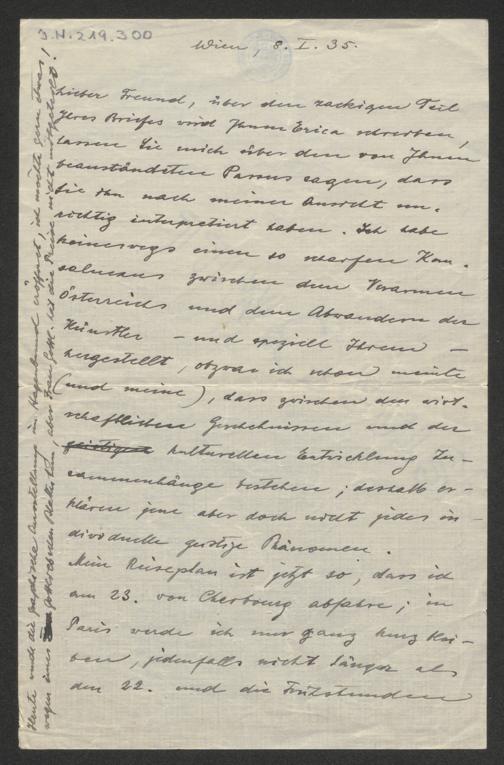 J.N. 219.300
Wien, 8. I. 35.
Lieber Freund, über den zackigen Teil
Ihres Briefes wird Ihnen Erica schreiben,
lassen Sie mich über den von Ihnen
beanständeten Passus sagen, dass
Sie ihn nach meiner Ansicht un-
richtig interpretiert haben. Ich habe
keineswegs einen so scharfen Kau-
salnexus zwischen dem Verarmen
Österreichs und dem Abwandern der
Künstler – und speziell Ihrem –
hergestellt, obzwar ich schon meinte
(und meine), dass zwischen den wirt-
schaftlichen Geschehnissen und der
geistigen kulturellen Entwicklung Zu-
sammenhänge bestehen; deshalb er-
klären jene aber doch nicht jedes in-
dividuelle geistige Phänomen.
Mein Reiseplan ist jetzt so, dass ich
am 23. von Cherbourg abfahre; in
Paris werde ich nur ganz kurz blei-
ben, jedenfalls nicht länger als
den 22. und die Frühstunden
Heute wurde die graphische Ausstellung im Hagenbund eröffnet, ich möchte gern etwas
wegen eines Blattes, aber Frau hat die Preise nicht mitgeteilt!